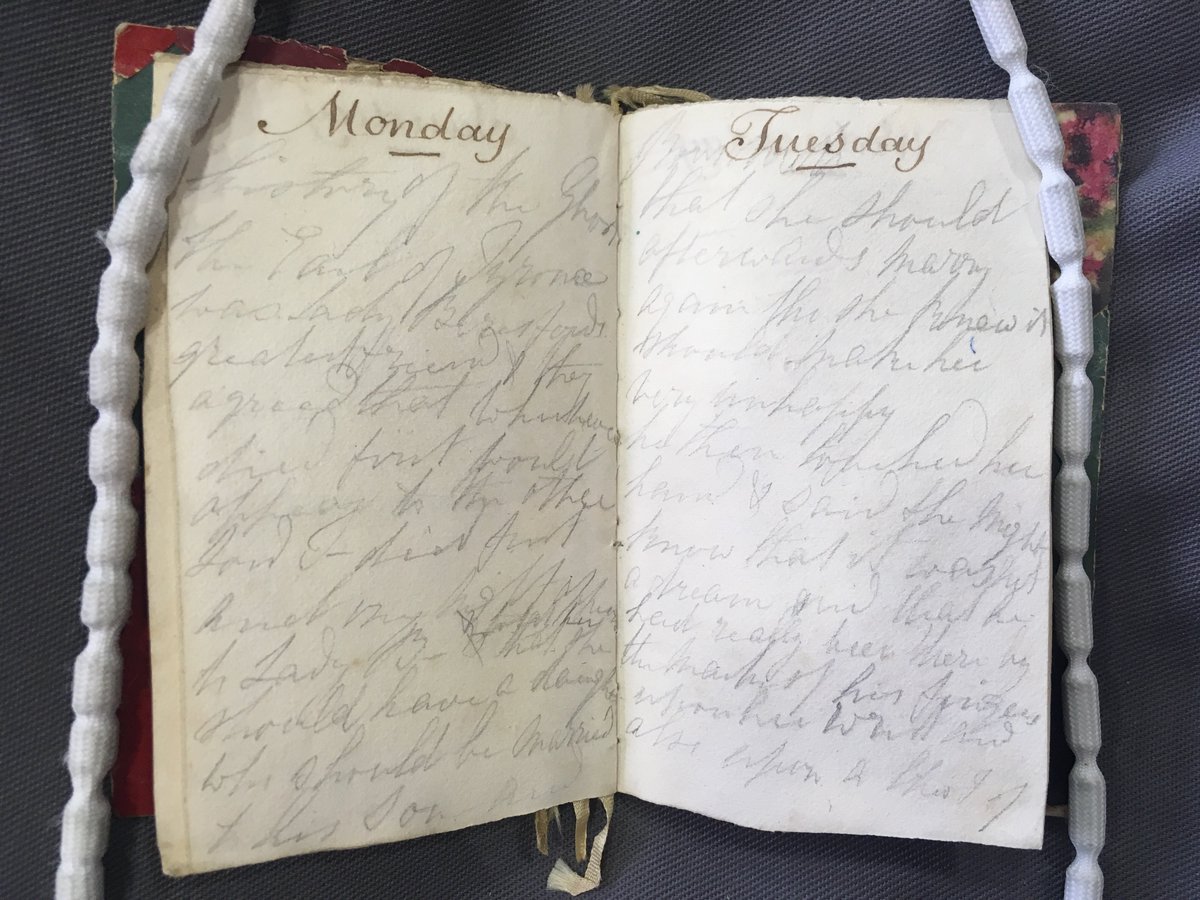 Monday
History of the Ghost
The Earl of Tyrone
was Lady Beresfords
greatest friend & they
agreed that whichever
died first would
appear to the other
Lord T– died first
and one night appeared
to Lady B– & that she
should have a daughter
who should be married
to his Son and
Tuesday
that she should
afterwards marry
again tho she knew it
should make her
very unhappy
he then touched her
hand & said she might
know that it was not
a dream and that he
had really been there by
the mark of his fingers
upon her wrist and
also upon a chest of